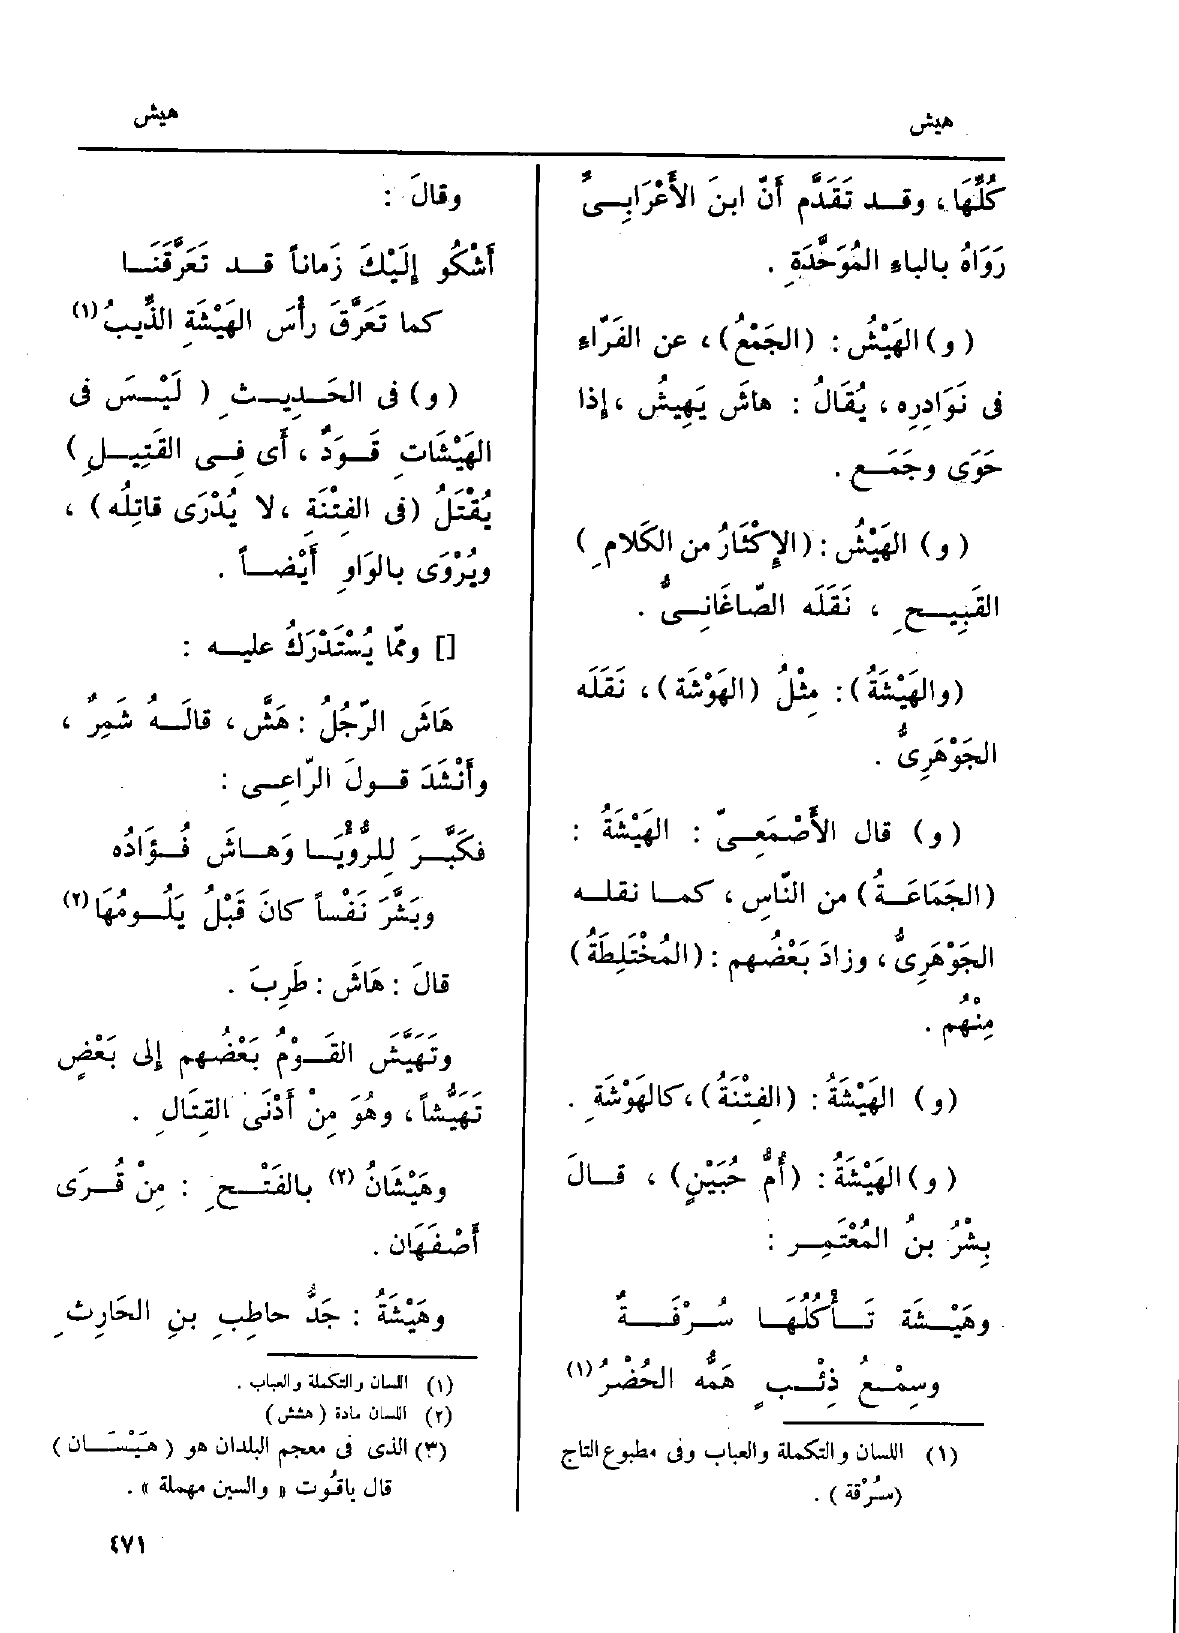 هيش
هيش
كُلِّهَا، وقد تَقَدَّم أَنّ ابنَ الأَعْرَابِىِّ
رَوَاهُ بالباءِ المُوَحَّدَةِ .
( و) الهَيْشُ : (الجَمْعُ)، عن الفَرّاءِ
فى نَوَادِرِه ، يُقَالُ : هاشَ يَهِيشُ ، إذا
حَوَى وجَمَع .
( و) الهَيْشُ : (الإِكْثَارُ من الكَلامِ)
القَبِيحِ ، نَقَلَه الصّاغَانِىُّ .
(والهَيْشَةُ): مِثْلُ (الهَوْشَة) ، نَقَلَه
الجَوْهَرِىُّ .
( و) قال الأَصْمَعِىّ : الهَيْشَةُ :
(الجَمَاعَةُ) من النّاسِ ، كما نقله
الجَوْهَرِىُّ، وزادَ بَعْضُهم : (المُخْتَلِطَةُ)
مِنْهُم .
(و) الهَيْشَةُ : (الفِتْنَةُ) ،كالهَوْشَةِ .
( و) الهَيْشَةُ : (أُمُّ حُبَيْنٍ) ، قالَ
بِشْرُ بنُ المُعْتَمِر :
وهَيْشَة تَأْكُلُهَا سُرْفَةٌ
وسِمْعُ ذِئْبٍ هَمُّه الحُضْرُ(١)
(١) اللسان والتكملة والعباب وفى مطبوع التاج
(سُرْقة ) .
وقالَ :
أَشْكُو إلَيْكَ زَماناً قد تَعَرَّقَنَا
كما تَعَرَّقَ رأْسَ الهَيْشَةِ الذِّيبُ(١)
( و) فى الحَدِيثِ ( لَيْسَ فى
الهَيْشَاتِ قَوَدٌ ، أَى فِى القَتِيلِ )
يُقْتَلُ (فى الفِتْنَةِ ،لا يُدْرَى قاتِلُه) ،
ويُرْوَى بالوَاوِ أَيْضاً .
[] وممّا يُسْتَدْرَكُ عليه :
هَاشَ الرّجُلُ : هَشَّ ، قالَهُ شَمِرٌ ،
وأَنْشَدَ قولَ الرّاعِى :
فكَبَّرَ لِلرُّؤْيَا وَهاشَ فُؤَادُه
وبَشَّرَ نَفْساً كانَ قَبْلُ يَلُومُهَا(٢)
قالَ : هَاشَ : طَرِبَ .
وتَهَيَّشَ القَوْمُ بَعْضُهم إلى بَعْضٍ
تَهَيُّشاً ، وهُوَ مِنْ أَدْنَى القِتَالِ .
وهَيْشَانُ (٢) بالفَتْحِ : مِنْ قُرَى
أَصْفَهَان .
وهَيْشَةُ : جَدُّ حاطِبِ بنِ الحَارِثِ
(١) اللسان والتكملة والعباب .
(٢) اللسان مادة (هشش)
(٣) الذى فى معجم البلدان هو (هَيْسَان)
قال ياقُوت « والسين مهملة » .
٤٧١